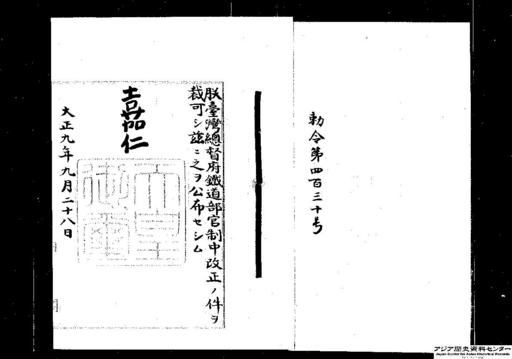 勅令第四百三十号
朕臺灣總督府鐵道部官制中改正ノ件ヲ
裁可シ茲ニ之ヲ公布セシム
嘉仁
天皇
御璽
大正九年九月二十八日
アジア歴史資料センター
Japan Center for Asian Historical Records